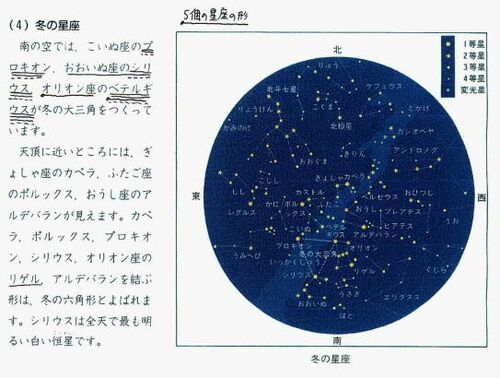 5個の星座の形
(4) 冬の星座
南の空では，こいぬ座のプ
ロキオン，おおいぬ座のシリ
ウス オリオン座のベテルギ
ウスが冬の大三角をつくって
います。
天頂に近いところには，ぎ
ょしゃ座のカペラ，ふたご座
のポルックス，おうし座のア
ルデバランが見えます。カペ
ラ，ポルックス，プロキオ
ン，シリウス，オリオン座の
リゲル，アルデバランを結ぶ
形は，冬の六角形とよばれま
す。シリウスは全天で最も明
るい白い恒星です。
北
1等星
2等星
3等星
4等星
変光星
りゅう
ケフェウス
北斗七星
こぐま
とかげ
りょうけん
カシオペヤ
かみのけ
北極星
アンドロメダ
おおぐま
きりん
こじし
ぎょしゃ
カペラ
東
しし
カストル
ペルセウス
おひつじ
西
レグルス
かに
ポルックス
ふたご
おうし
プレアデス
うお
こいぬ
ベテルギウス
ヒアデス
アルデバラン
プロキオン
オリオン
うみへび
冬の大三角
いっかくじゅう
リゲル
くじら
シリウス
うさぎ
エリダヌス
おおいぬ
はと
南
冬の星座